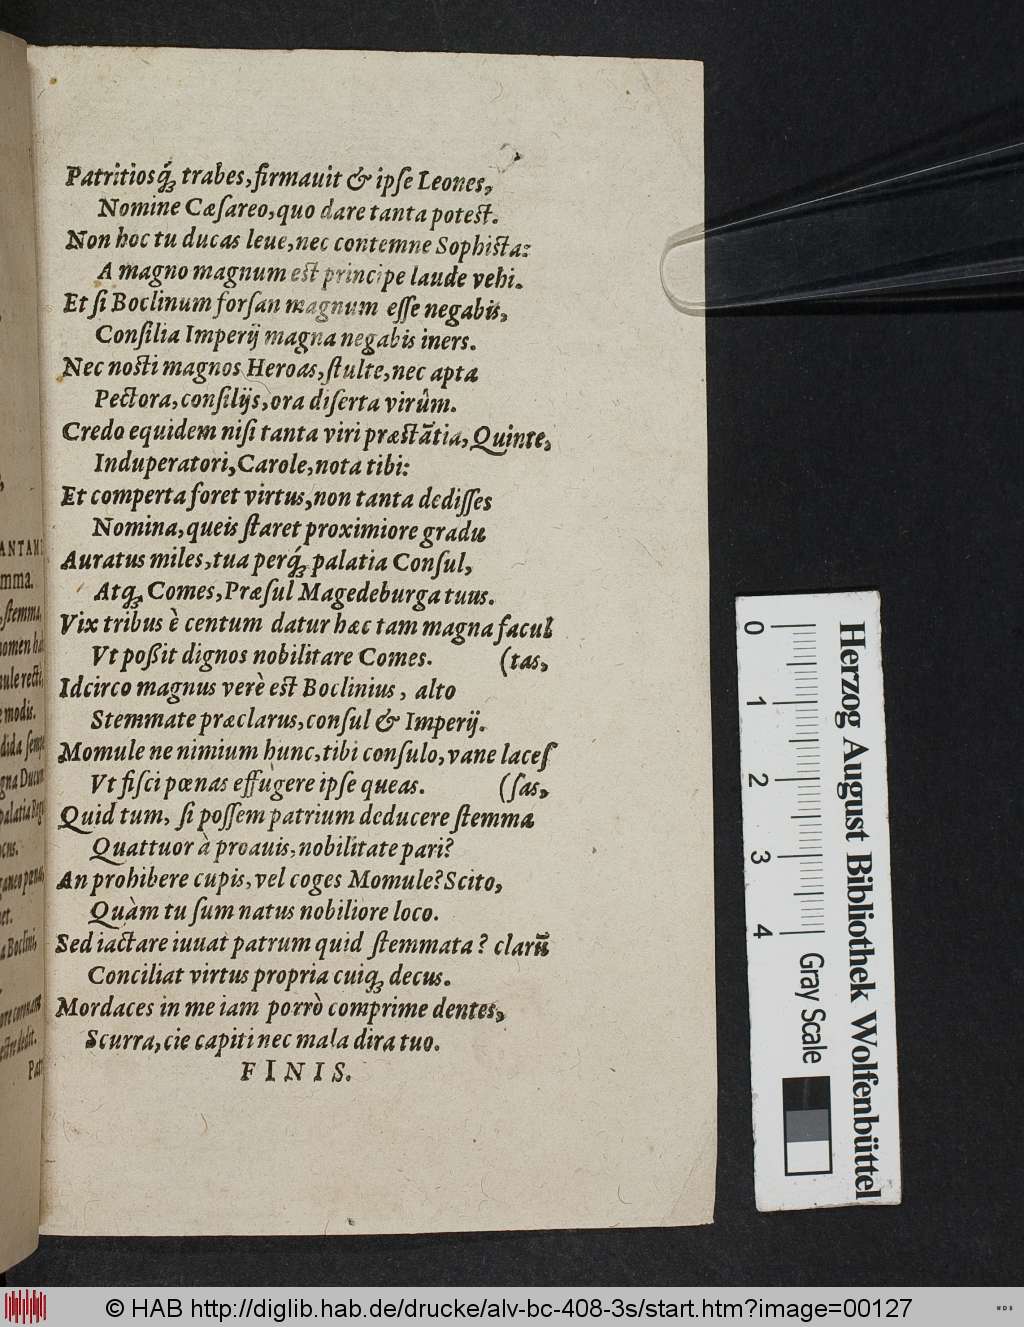 Patritiosq́ꝫ trabes, firmauit & ipſe Leones,
Nomine Cæſareo, quo dare tanta potest.
Non hoc tu ducas leue, nec contemne Sophista:
A magno magnum est principe laude vehi.
Et ſi Boclinum forſan magnum eſſe negabis,
Conſilia Imperij magna negabis iners.
Nec nosti magnos Heroas, ſtulte, nec apta
Pectora, conſilijs, ora diſerta virûm.
Credo equidem niſi tanta viri præstãtia, Quinte,
Induperatori, Carole, nota tibi:
Et comperta foret virtus, non tanta dediſſes
Nomina, queis ſtaret proximiore gradu
Auratus miles, tua perq́ꝫ palatia Conſul,
Atqꝫ Comes, Præſul Magedeburga tuus.
Vix tribus è centum datur hæc tam magna facul
Vt poßit dignos nobilitare Comes. (tas,
Idcirco magnus verè est Boclinius, alto
Stemmate præclarus, conſul & Imperij.
Momule ne nimium hunc, tibi conſulo, vane laceſ
Vt fiſci pœnas effugere ipſe queas. (ſas,
Quid tum, ſi poſſem patrium deducere ſtemma
Quattuor à proauis, nobilitate pari?
An prohibere cupis, vel coges Momule? Scito,
Quàm tu ſum natus nobiliore loco.
Sed iactare iuuat patrum quid ſtemmata? clarũ
Conciliat virtus propria cuiqꝫ decus.
Mordaces in me iam porrò comprime dentes,
Scurra, cie capiti nec mala dira tuo.
FINIS.
ANTAM
mma.
ſtemma,
nomen ha
mule recti,
modis.
dida ſemp
gna Ducum
palatia Reg
ocus.
Boclini,
Pat
Herzog August Bibliothek Wolfenbüttel
0 1 2 3 4
Gray Scale
© HAB http://diglib.hab.de/drucke/alv-bc-408-3s/start.htm?image=00127